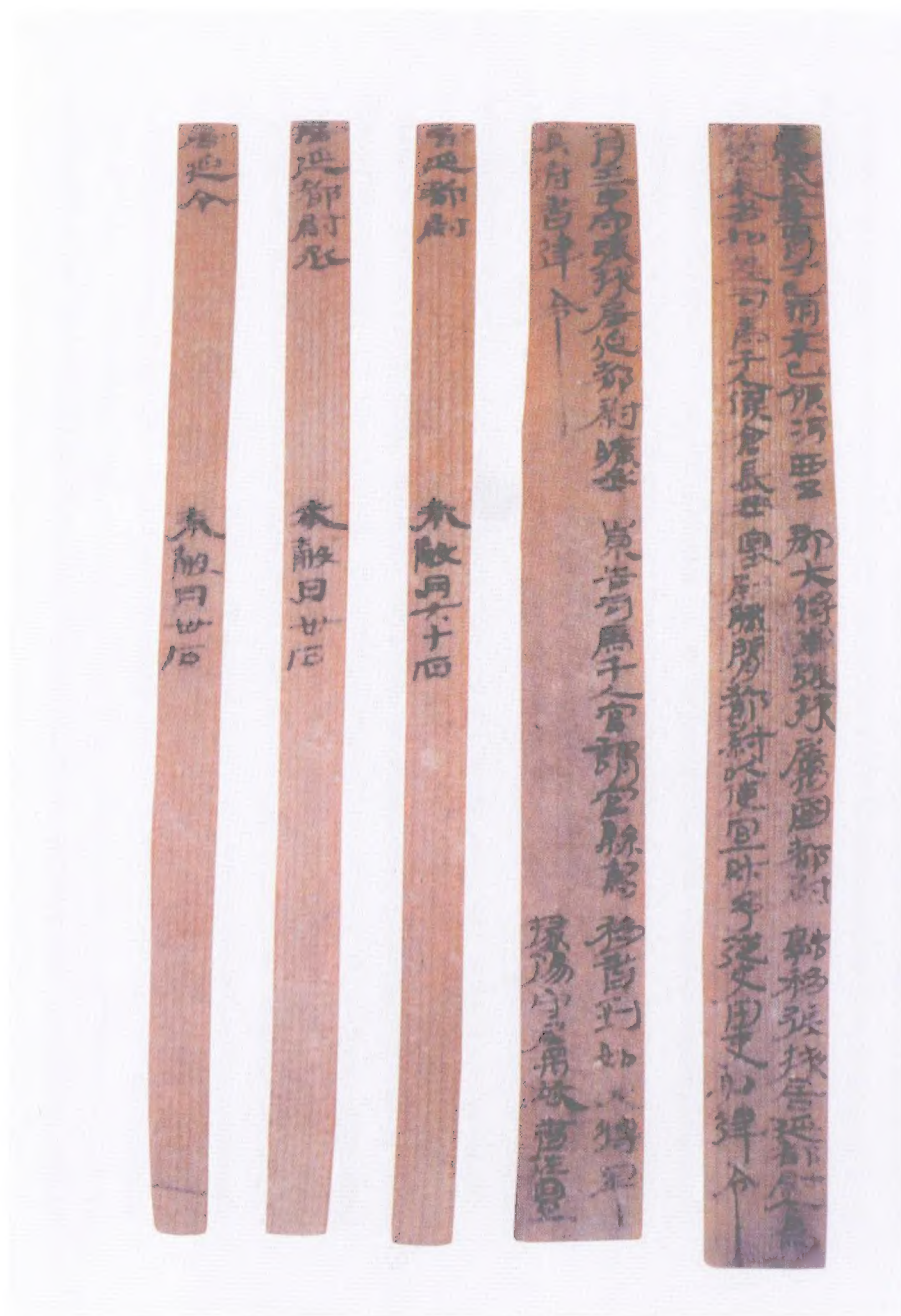 建武三年四月丁巳朔辛巳領河西五郡大將軍張掖屬國都尉融移張掖居延都尉今為
都尉以下奉各如差司馬千人候倉長丞塞尉職閒都尉以便宜財予從史田吏如律令
六月壬申守張掖居延都尉曠丞崇告司馬千人官謂官縣寫移書到如大將軍
莫府書律令 掾陽守屬恭書佐豐
居延都尉 奉穀月六十石
居延都尉丞 奉穀月卅石
居延令 奉穀月卅石